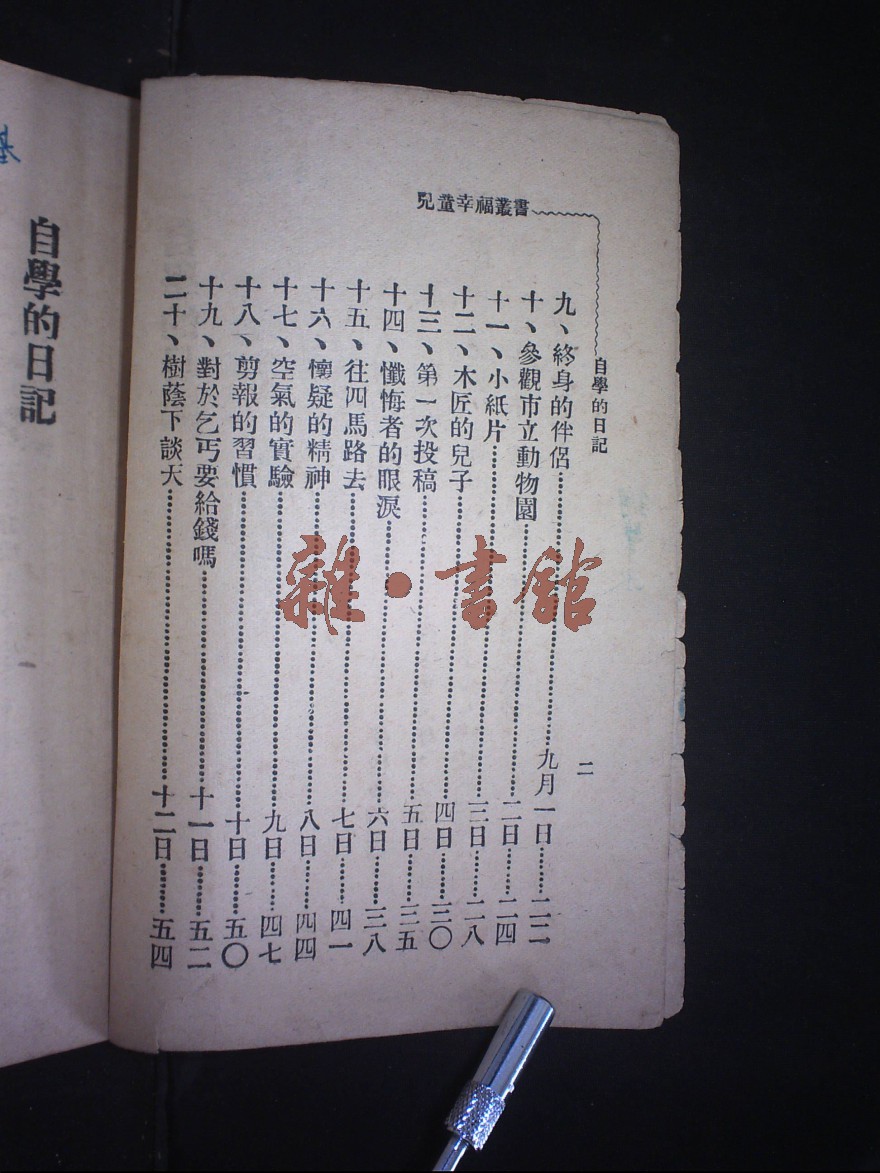 兒童幸福叢書
自學的日記
二
九、終身的伴侶……九月一日……二二
十、參觀市立動物園……二日……二四
十一、小紙片……三日……二八
十二、木匠的兒子……四日……三〇
十三、第一次投稿……五日……三五
十四、懺悔者的眼淚……六日……三八
十五、往四馬路去……七日……四一
十六、懷疑的精神……八日……四四
十七、空氣的實驗……九日……四七
十八、剪報的習慣……十日……五〇
十九、對於乞丐要給錢嗎……十一日……五二
二十、樹蔭下談天……十二日……五四
自學的日記
雜·書館